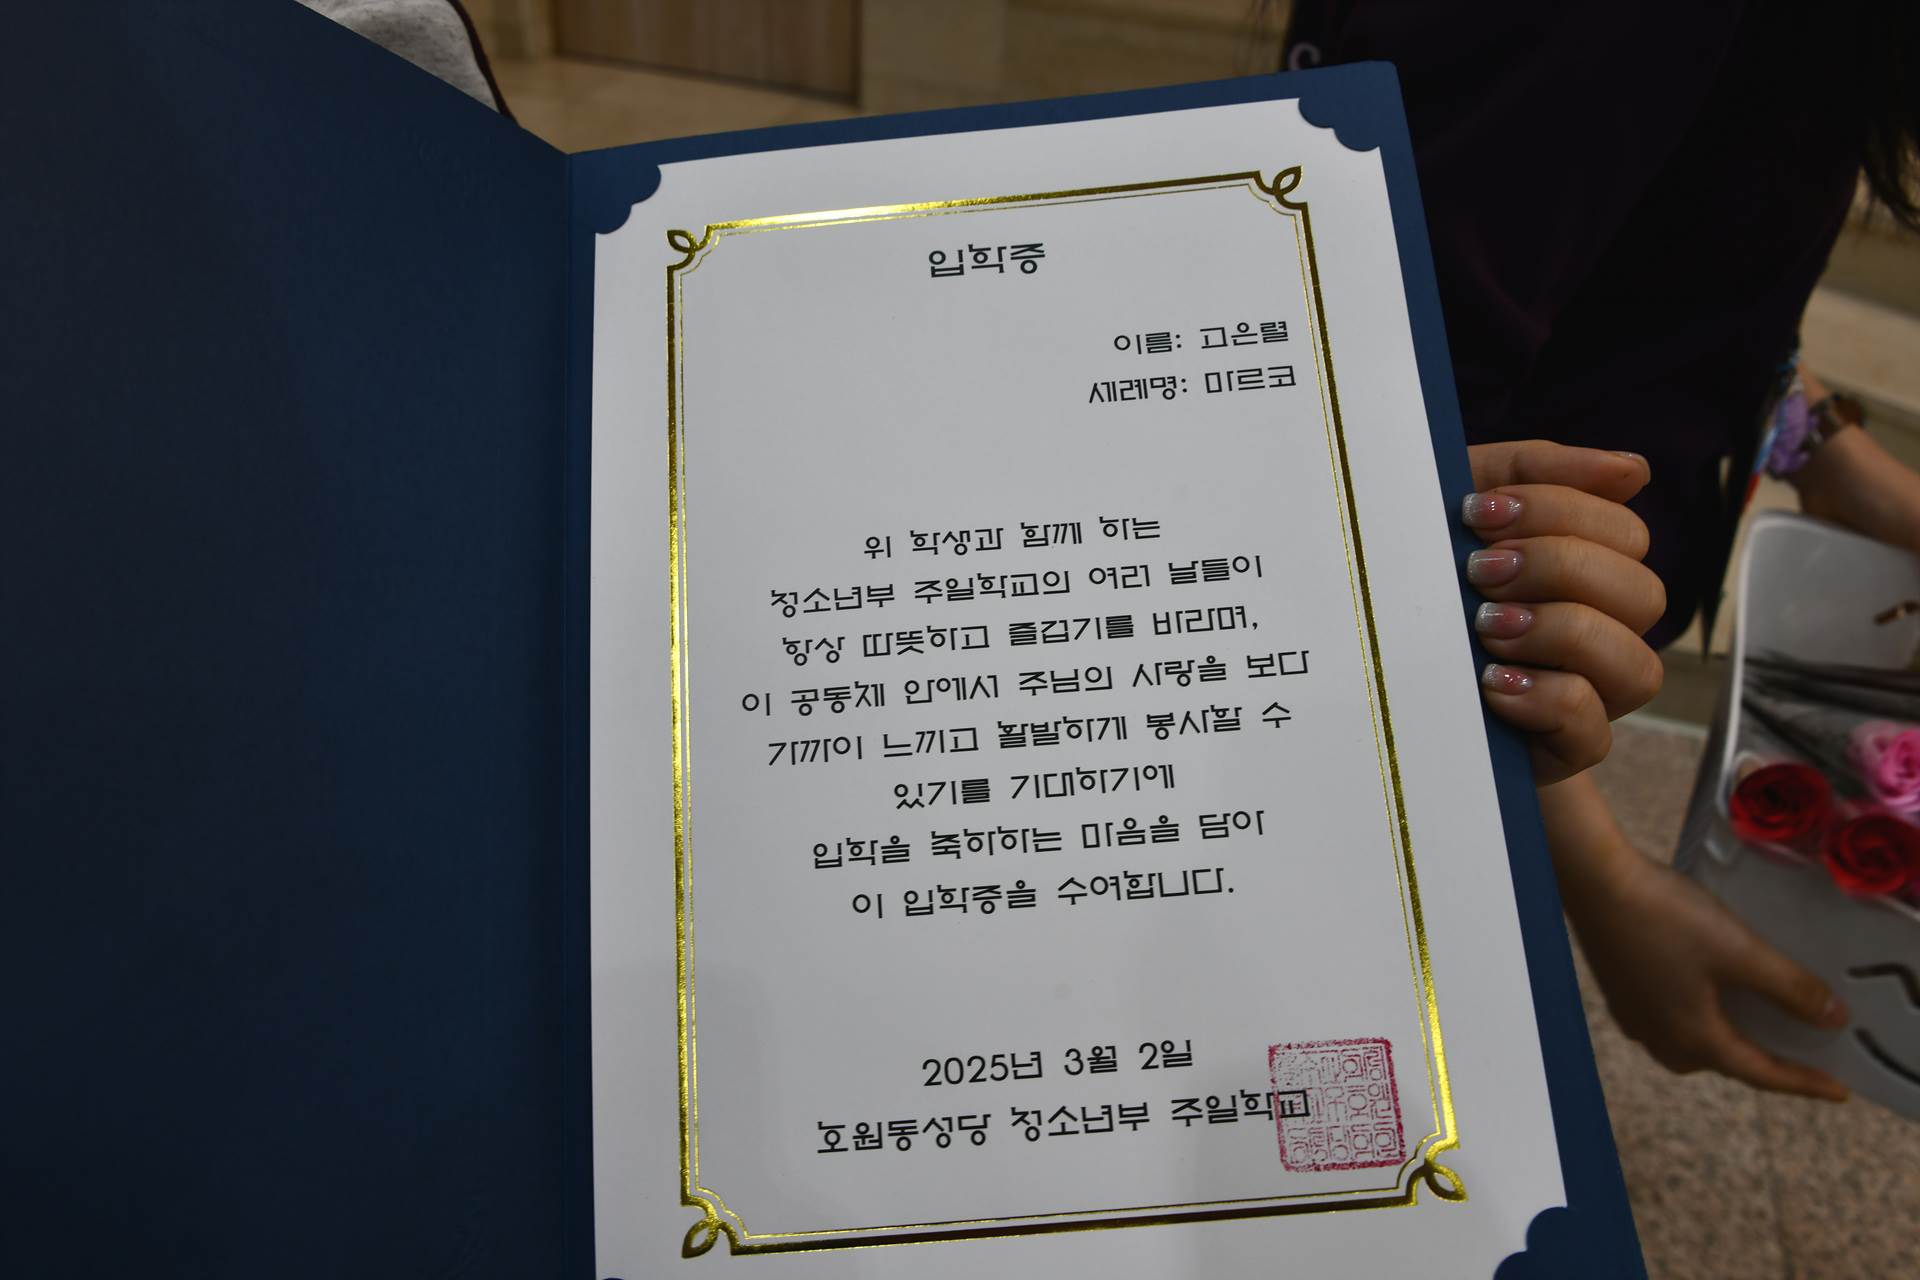 입학증
이름: 고은렬
세례명: 마르코
위 학생과 함께 하는
청소년부 주일학교의 여러 날들이
항상 따뜻하고 즐겁기를 바라며,
이 공동체 안에서 주님의 사랑을 보다
가까이 느끼고 활발하게 봉사할 수
있기를 기대하기에
입학을 축하하는 마음을 담아
이 입학증을 수여합니다.
2025년 3월 2일
호원동성당 청소년부 주일학교